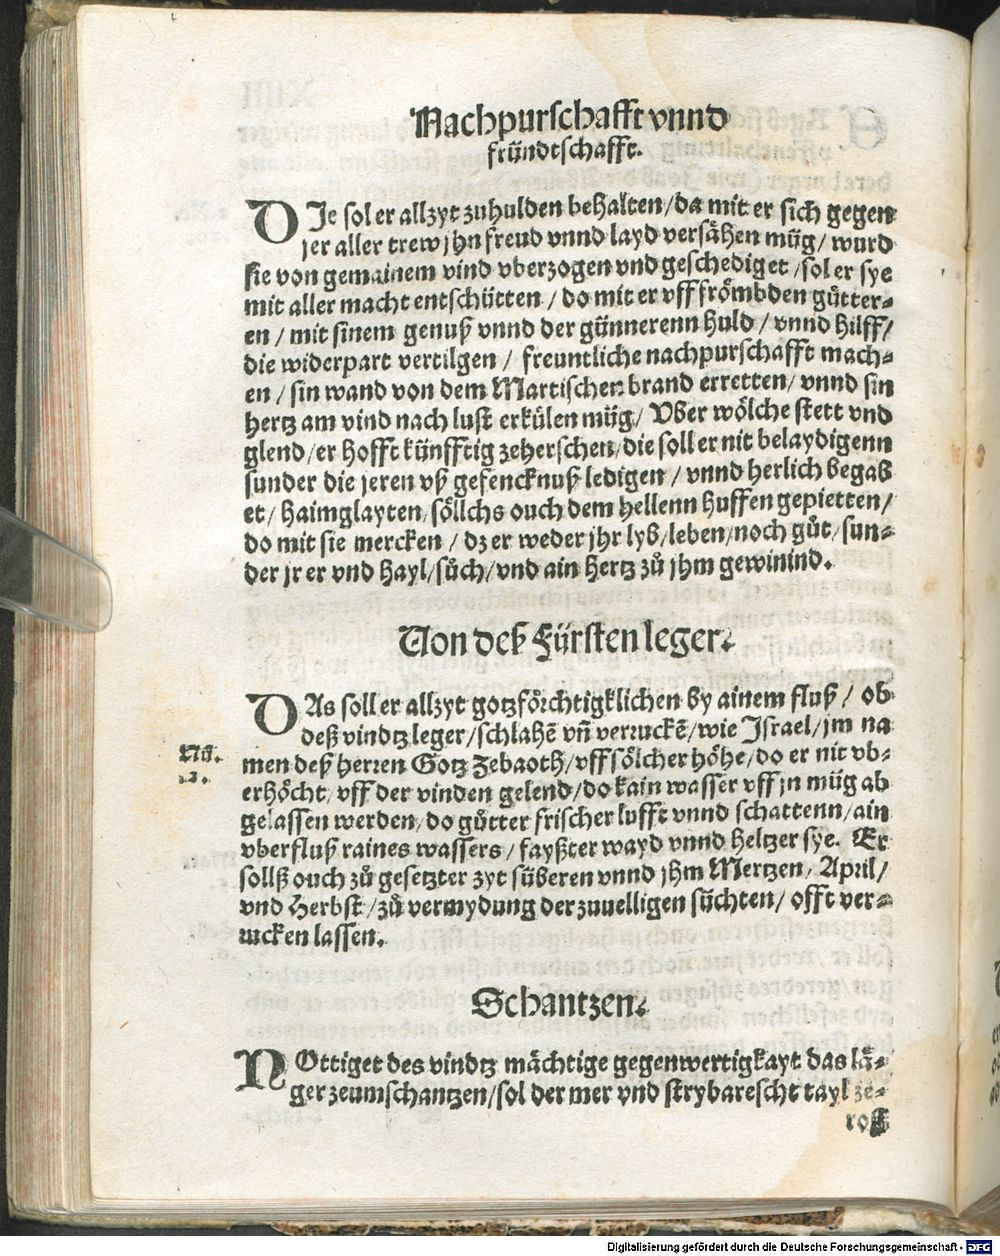 Nachpurschafft vnnd
fründtschafft.
DIe sol er allzyt zuhulden behalten/da mit er sich gegen
jer aller trew jhn freud vnnd layd versåhen müg/ wurd
sie von gemainem vind vberzogen vnd geschediget/sol er sye
mit aller macht entschütten/ do mit er vff frŏmbden gůtter⸗
en/ mit sinem genuß vnnd der günnerenn huld/ vnnd hilff/
die widerpart vertilgen/ freuntliche nachpurschafft mach⸗
en/ sin wand von dem Martischen brand erretten/ vnnd sin
hertz am vind nach lust erkülen müg/ Vber wŏlche stett vnd
glend/er hofft künfftig zeherschen/die soll er nit belaydigenn
sunder die jeren vß gefencknuß ledigen/ vnnd herlich begab
et/ haimglayten/sŏllchs ouch dem hellenn huffen gepietten/
do mit sie mercken/ dz er weder jhr lyb/leben/noch gůt/sun⸗
der jr er vnd hayl/sůch/vnd ain hertz zů jhm gewinind.
Von deß Fürsten leger.
DAs soll er allzyt gotzfŏrchtigklichen by ainem fluß/ ob
deß vindtz leger/schlahē vn̄ verruckē/wie Israel/jm na
Nu.
2.
men deß herren Gotz Zebaoth/vff sŏlcher hŏhe/do er nit vb⸗
erhŏcht/vff der vinden gelend/do kain wasser vff jn müg ab
gelassen werden/do gůtter frischer lufft vnnd schattenn/ain
vberfluß raines wassers/ fayßter wayd vnnd heltzer sye. Er
sollß ouch zů gesetzter zyt süberen vnnd jhm Mertzen/ April/
vnd Herbst/zů vermydung der zuuelligen süchten/ offt ver⸗
rucken lassen.
Schantzen.
NOttiget des vindtz måchtige gegenwertigkayt das lå⸗
ger zeumschantzen/sol der mer vnd strybarescht tayl ze⸗
ross
Digitalisierung gefördert durch die Deutsche Forschungsgemeinschaft - DFG